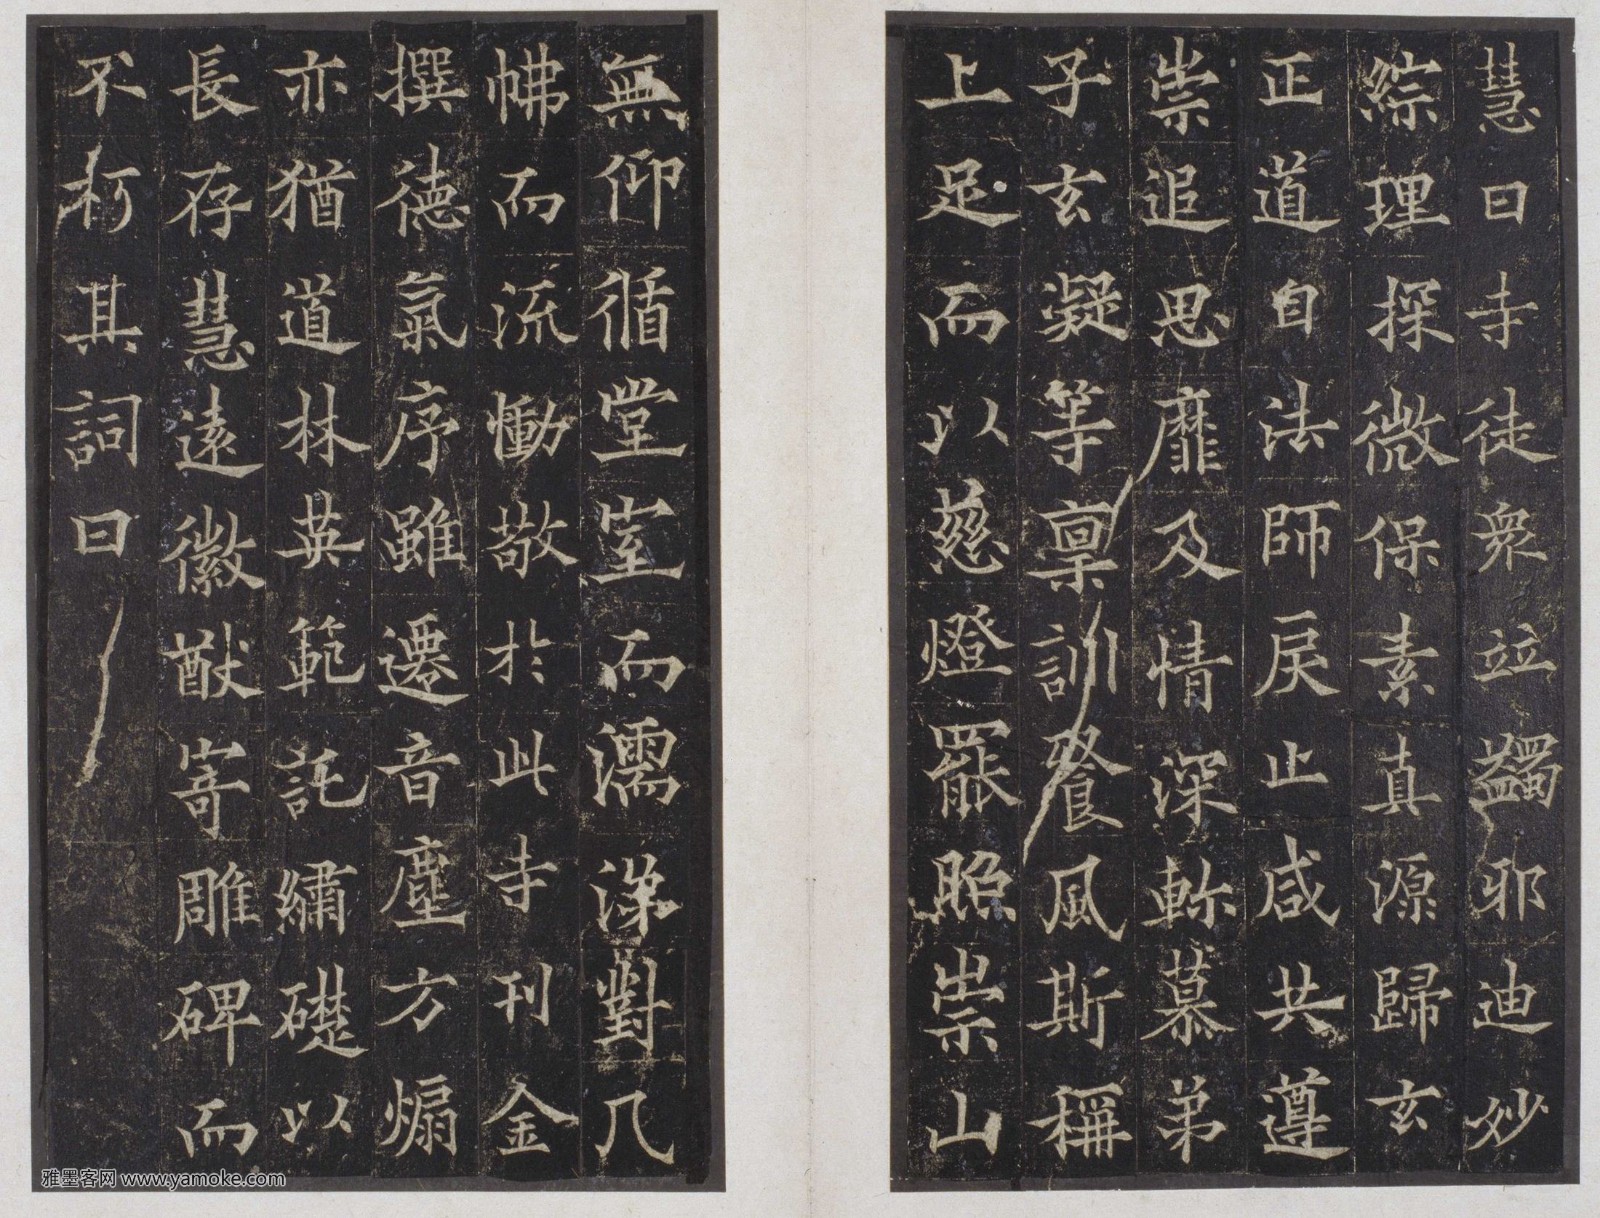 慧曰寺徒衆竝蠲邪迪妙
綜理探微保素真源歸玄
正道自法師戾止咸共遵
崇追思靡及情深軫慕弟
子玄凝等禀訓飡風斯稱
上足而以慈燈罷照崇山
無仰循堂室而濡涕對几
怫而流慟敬於此寺刊金
撰德氣序雖遷音塵方煽
亦猶道林英範託繡礎以
長存慧遠徽猷寄雕碑而
不朽其詞曰
雅墨客网 www.yamoke.com